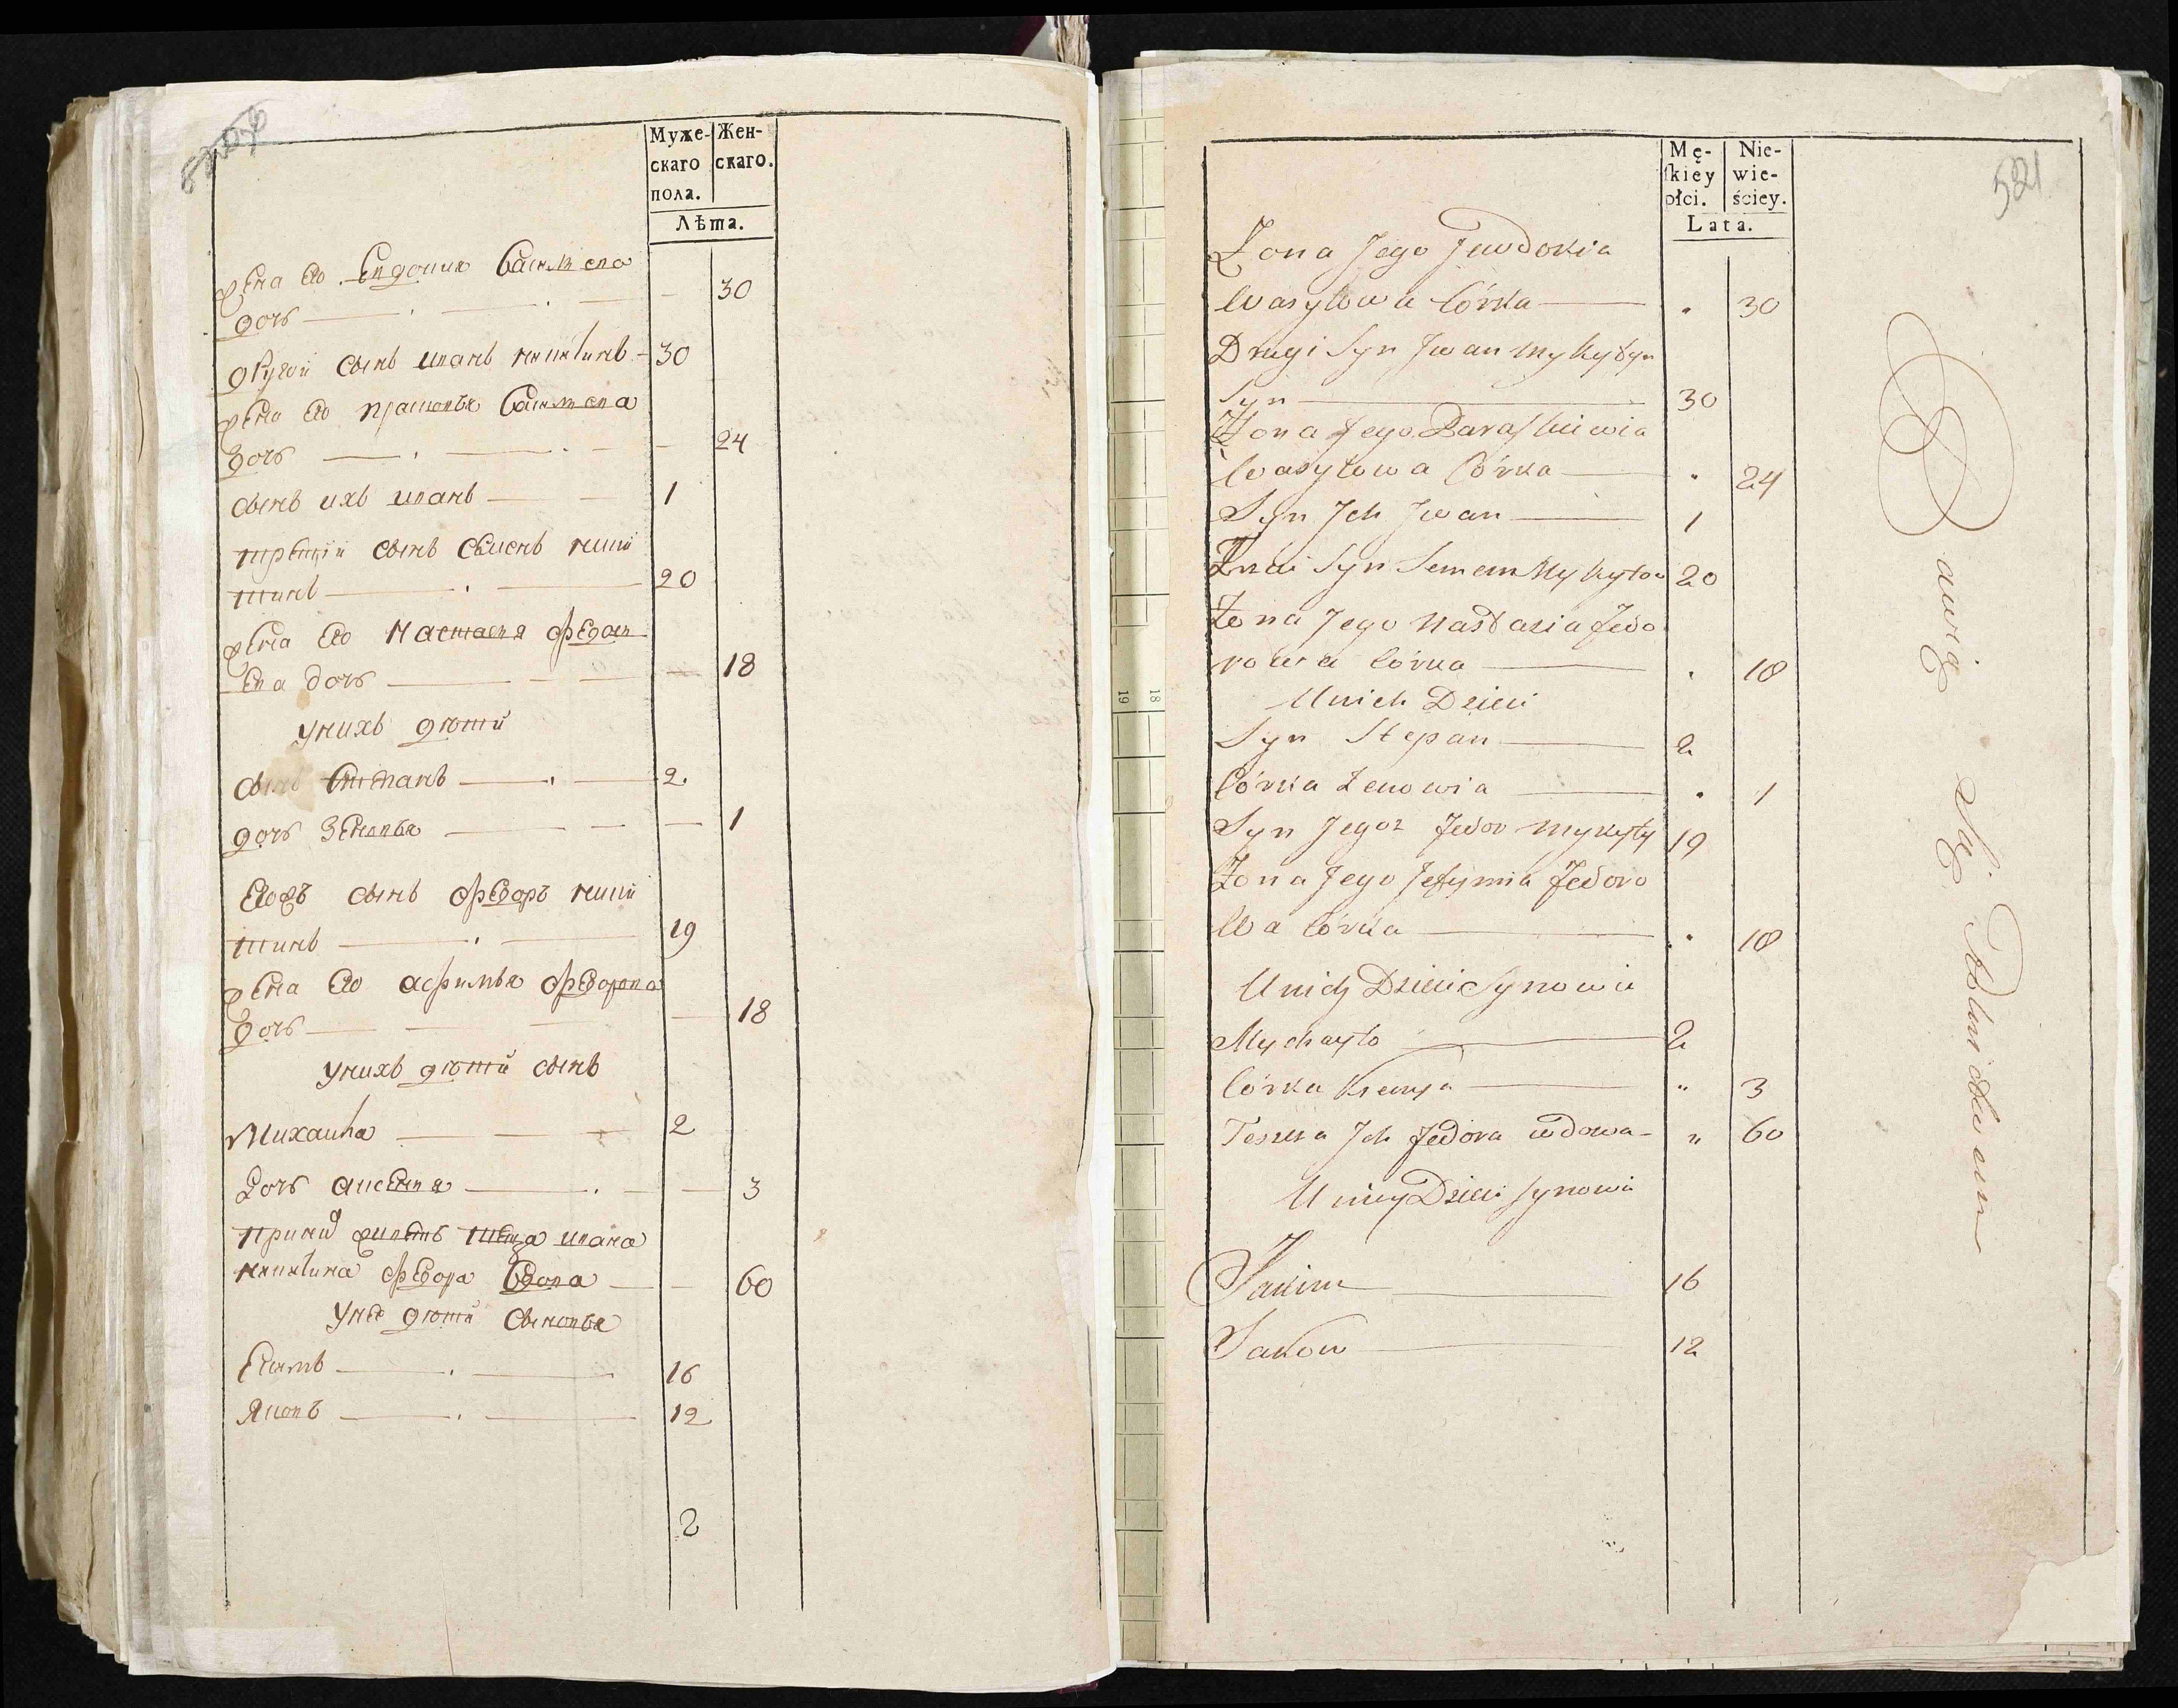 Муже-
скаго
пола.
Жен-
скаго.
Лѣта.
жена его Евдокия Василева
дочь 30
другой сынъ иванъ никитинъ 30
жена его прасковья Василева
дочь 24
сынъ ихъ иванъ 1
третій сынъ семенъ ники
тинъ 20
жена его Настасья федоро
ва дочь 18
у нихъ дѣти
сынъ степанъ 2
дочь Зеновья 1
Егожъ сынъ федоръ ники
тинъ 19
жена его афимья федорова
дочь 18
у нихъ дѣти сынъ
Михаила 2
Дочь аксенья 3
при нихъ живетъ теща ивана
никитина федора вдова 60
у ней дѣти сыновья
Екимъ 16
Яковъ 12
2
521
Mę-
skiey
płci.
Nie-
wie-
ściey.
Lata.
Żona Jego Jewdokia
Wasylowa Córka " 30
Drugi Syn Jwan Mykytyn
Syn 30
Żona Jego Paraskiewia
Wasylowa Córka " 24
Syn Jch Jwan 1
Syn Semen Mykytow 20
Żona Jego Nastazia Fedo
rowa Córka " 18
U nich Dzieci
Syn Stepan 2
Córka Zenowia " 1
Syn Jegoż Fedor Mykyty 19
Żona Jego Jefymia Fedoro
Wa Córka " 18
U nich Dzieci Synowie
Mychayło 2
Córka Ksenya " 3
Teszcza Jch Fedora wdowa " 60
U niey Dzieci synowie
Jakim 16
Jakow 12